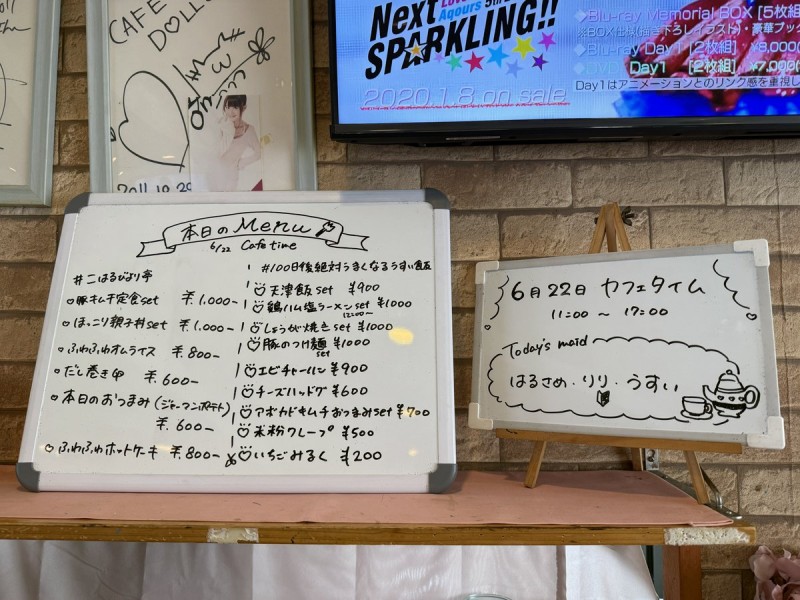 CAFE
DOLL
2011.10.29
Next
Aqours 5th
SPARKLING!!
2020.1.8 on sale
◆Blu-ray Memorial BOX [5枚組]
※BOX仕様(描き下ろしイラスト)・豪華ブック
◆Blu-ray Day1 [2枚組] ¥8,000(
◆DVD Day1 [2枚組] ¥7,000(
Day1はアニメーションとのリンク感を重視し
本日のMenu
6/22 Cafe time
#こはるびより亭
豚キム千定食set ¥.1,000-
ほっこり親子丼set ¥.1,000-
ふわふわオムライス ¥.800-
だし巻き卵 ¥.600-
本日のおつまみ(ジャーマンポテト)
¥.600-
ふわふわホットケーキ ¥.800-
#100日後絶対うまくなるうすい飯
天津飯set ¥900
鶏ハム塩ラーメンset ¥1000
12:00~
しょうが焼きset ¥1000
豚のつけ麺set ¥1000
エビチャーハン ¥900
チーズハッドグ ¥600
アボカドキムチおつまみset ¥700
米粉クレープ ¥500
いちごみるく ¥200
6月22日 カフェタイム
11:00 ～ 17:00
Today's maid
はるさめ・りり・うすい